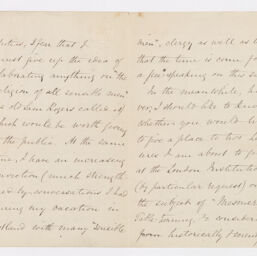 ties, I fear that I
must give up the idea of
elaborating anything on "the
religion of all sensible men"
as old Sam Rogers called it)
which would be worth giving
to the public. At the same
time, I have an increasing
conviction (much strength-
ened by conversations I had
during my vacation in
Scotland with many "sensible
men", clergy as well as l
that the time is come fo
a few speaking on this su
In the meanwhile, ho
ver, I should like to kno
whether you would li
to give a place to two le
ures I am about to g
at the London Institutio
(by particular request) o
the subject of "Mesmer
Table-turning, &c considere
from historically & scien